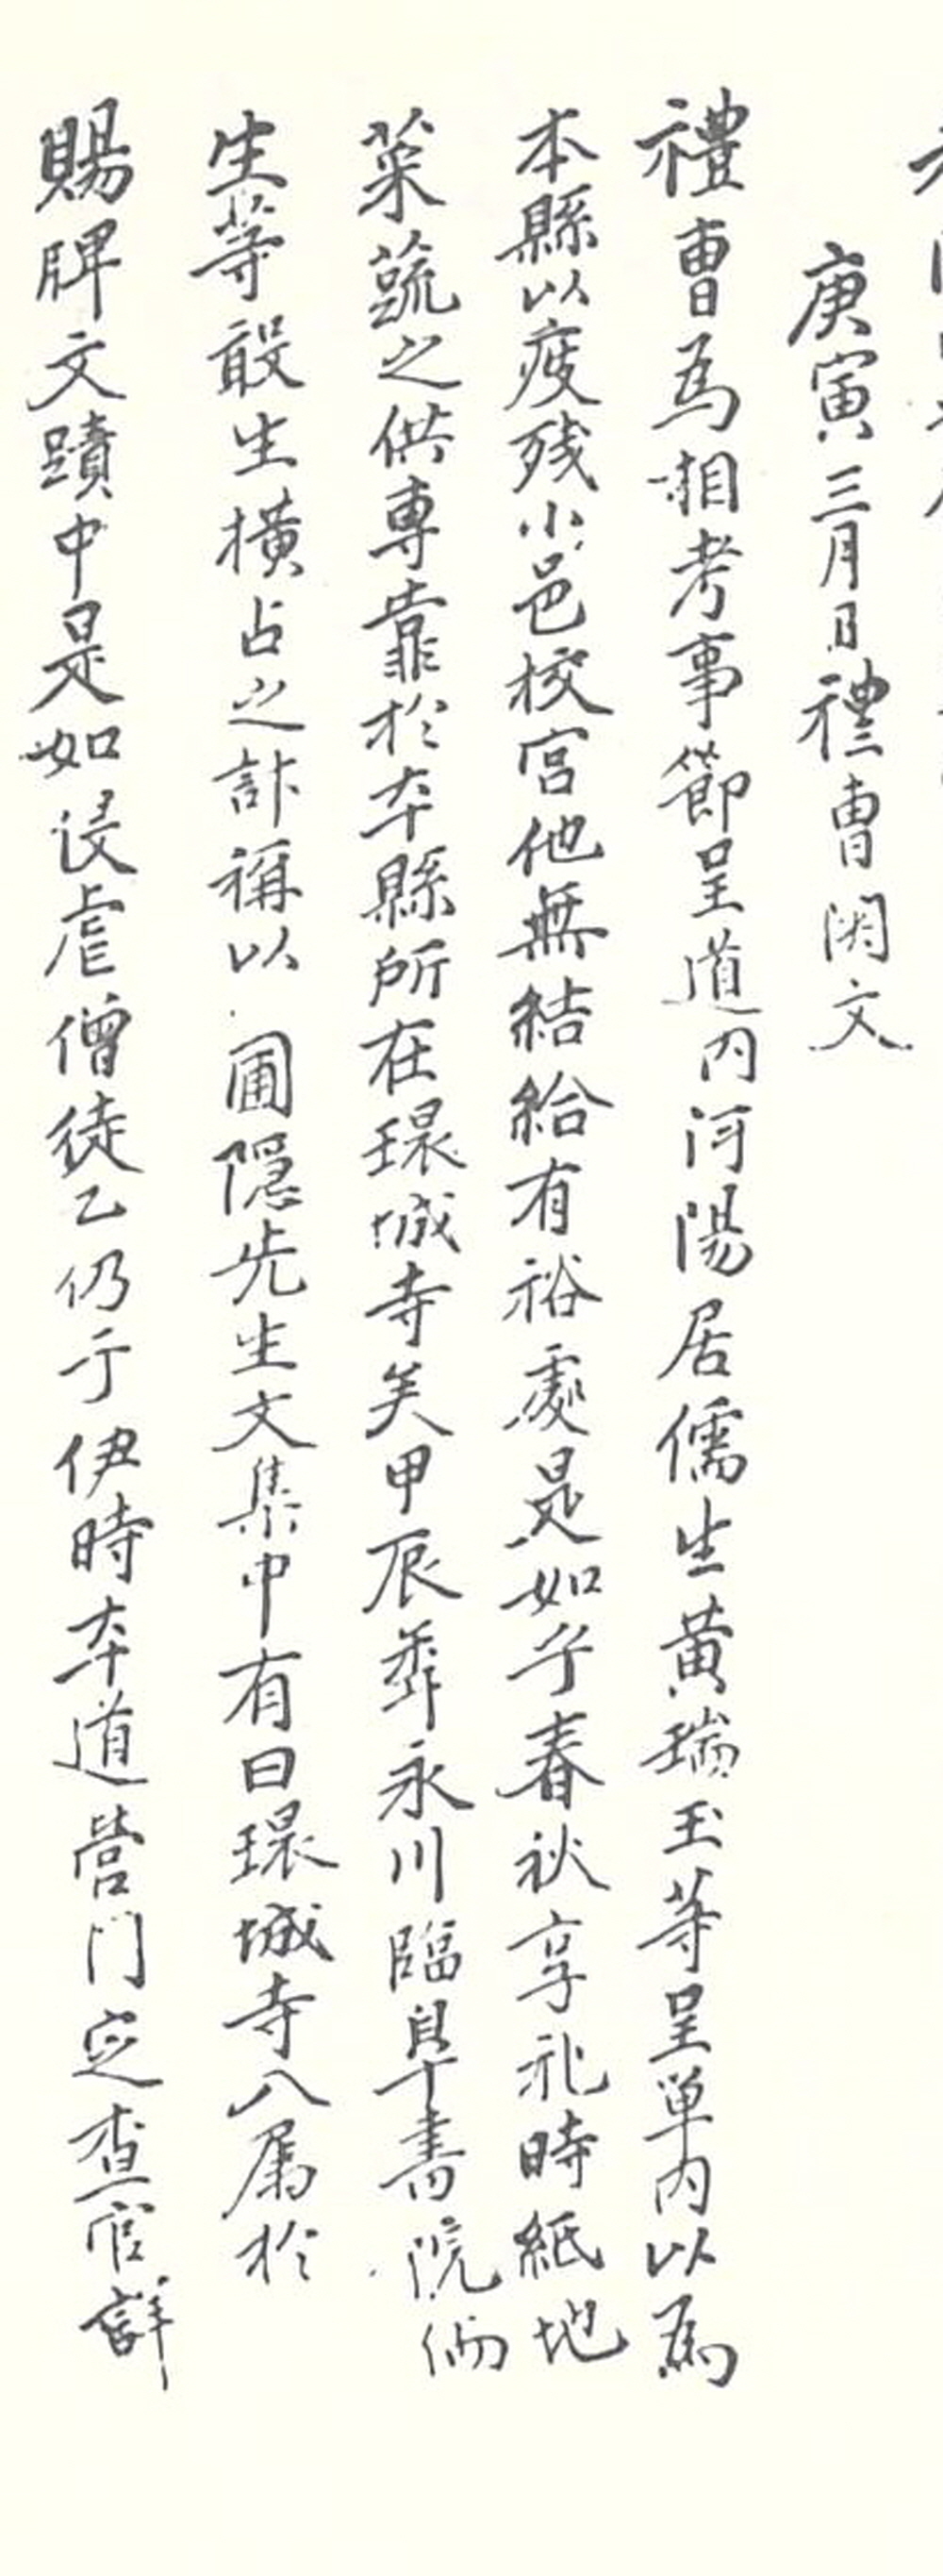 庚寅三月日禮曹関文
禮曹為相考事節呈道內河陽居儒生黃瑞玉等呈単內以為
本縣以疲残小邑校宮他無結給有裕處是如乎春秋享祀時紙地
菜蔬之供専靠於夲縣所在環城寺矣甲辰年永川臨臯書院儒
生等敢生横占之計稱以圃隱先生文集中有曰環城寺入属於
賜牌文蹟中是如侵虐僧徒乙仍于伊時夲道營門定查官詳